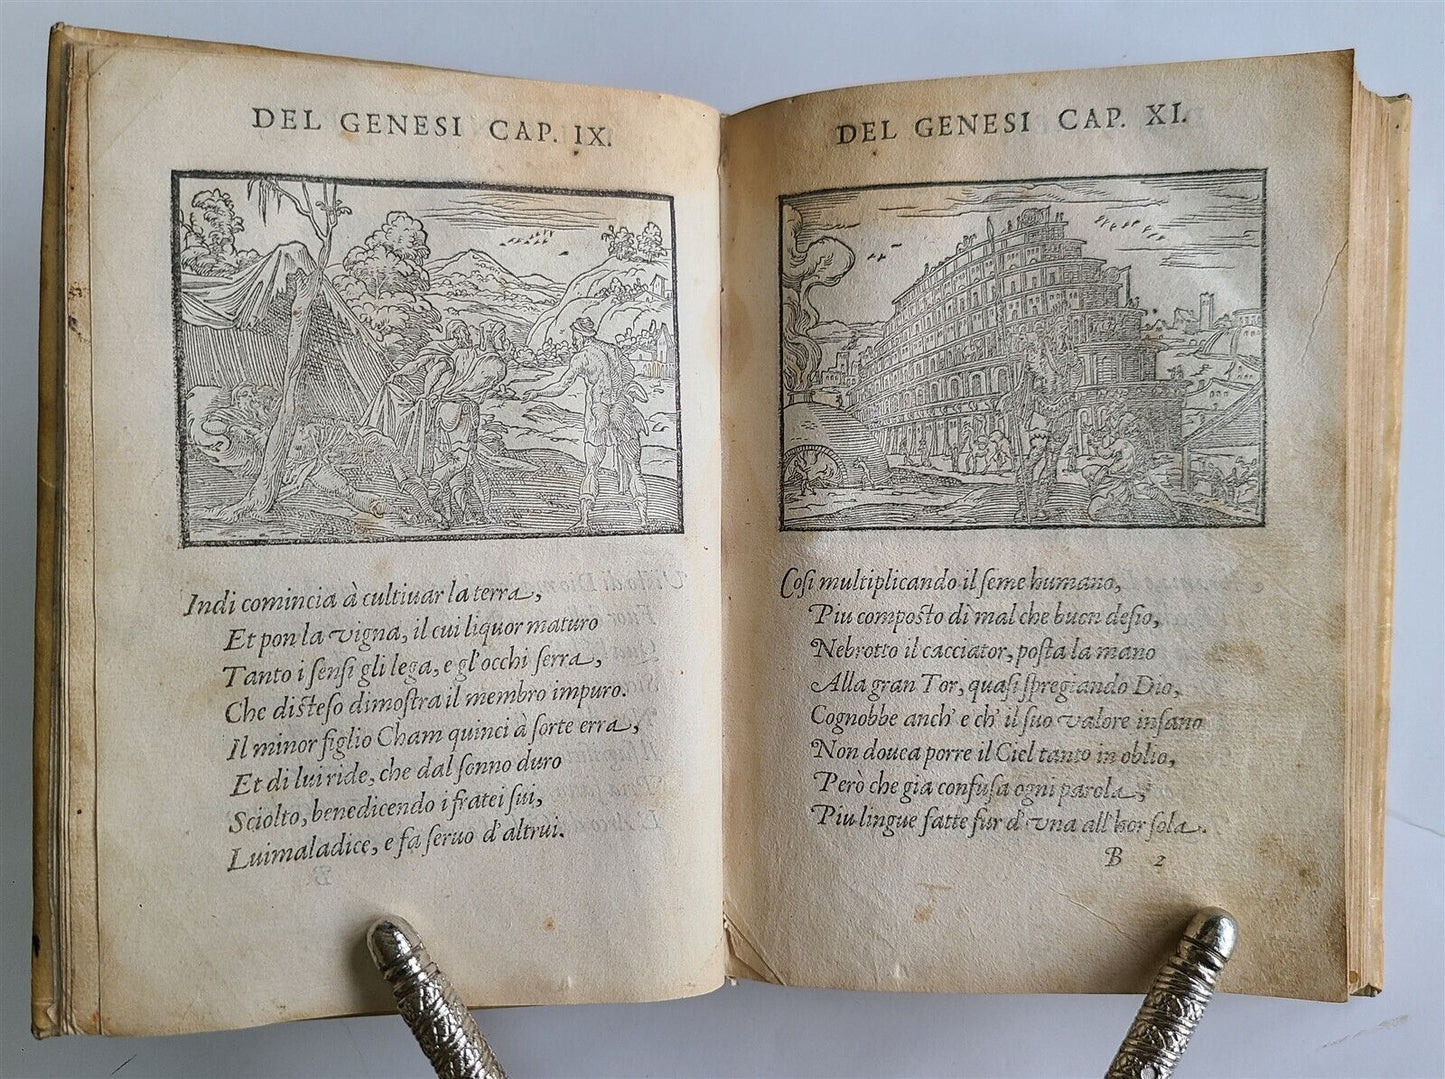 DEL GENESI CAP. IX.
Indi comincia à cultiuar la terra,
Et pon la vigna, il cui liquor maturo
Tanto i sensi gli lega, e gl'occhi serra,
Che disteso dimostra il membro impuro.
Il minor figlio Cham quinci à sorte erra,
Et di lui ride, che dal sonno duro
Sciolto, benedicendo i fratei sui,
Lui maladice, e fa seruo d'altrui.
DEL GENESI CAP. XI.
Cosi multiplicando il seme humano,
Piu composto di mal che buon desio,
Nebrotto il cacciator, posta la mano
Alla gran Tor, quasi spregiando Dio,
Cognobbe anch' e ch' il suo valore insano
Non douea porre il Ciel tanto in oblio,
Però che gia confusa ogni parola,
Piu lingue fatte fur d'vna all'hor sola.
B 2